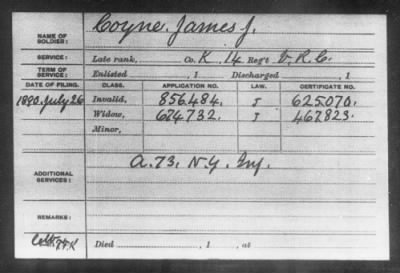 NAME OF SOLDIER: Coyne, James J.
SERVICE: Late rank, Co. K 14 Reg't V.R.C.
TERM OF SERVICE: Enlisted , 1 Discharged , 1
DATE OF FILING. CLASS. APPLICATION NO. LAW. CERTIFICATE NO.
1890 July 26 Invalid, 856.484. J 625.070.
Widow, 674732. J 467823.
Minor,
ADDITIONAL SERVICES: A. 73, N.Y. Inf.
REMARKS:
Died , 1 , at